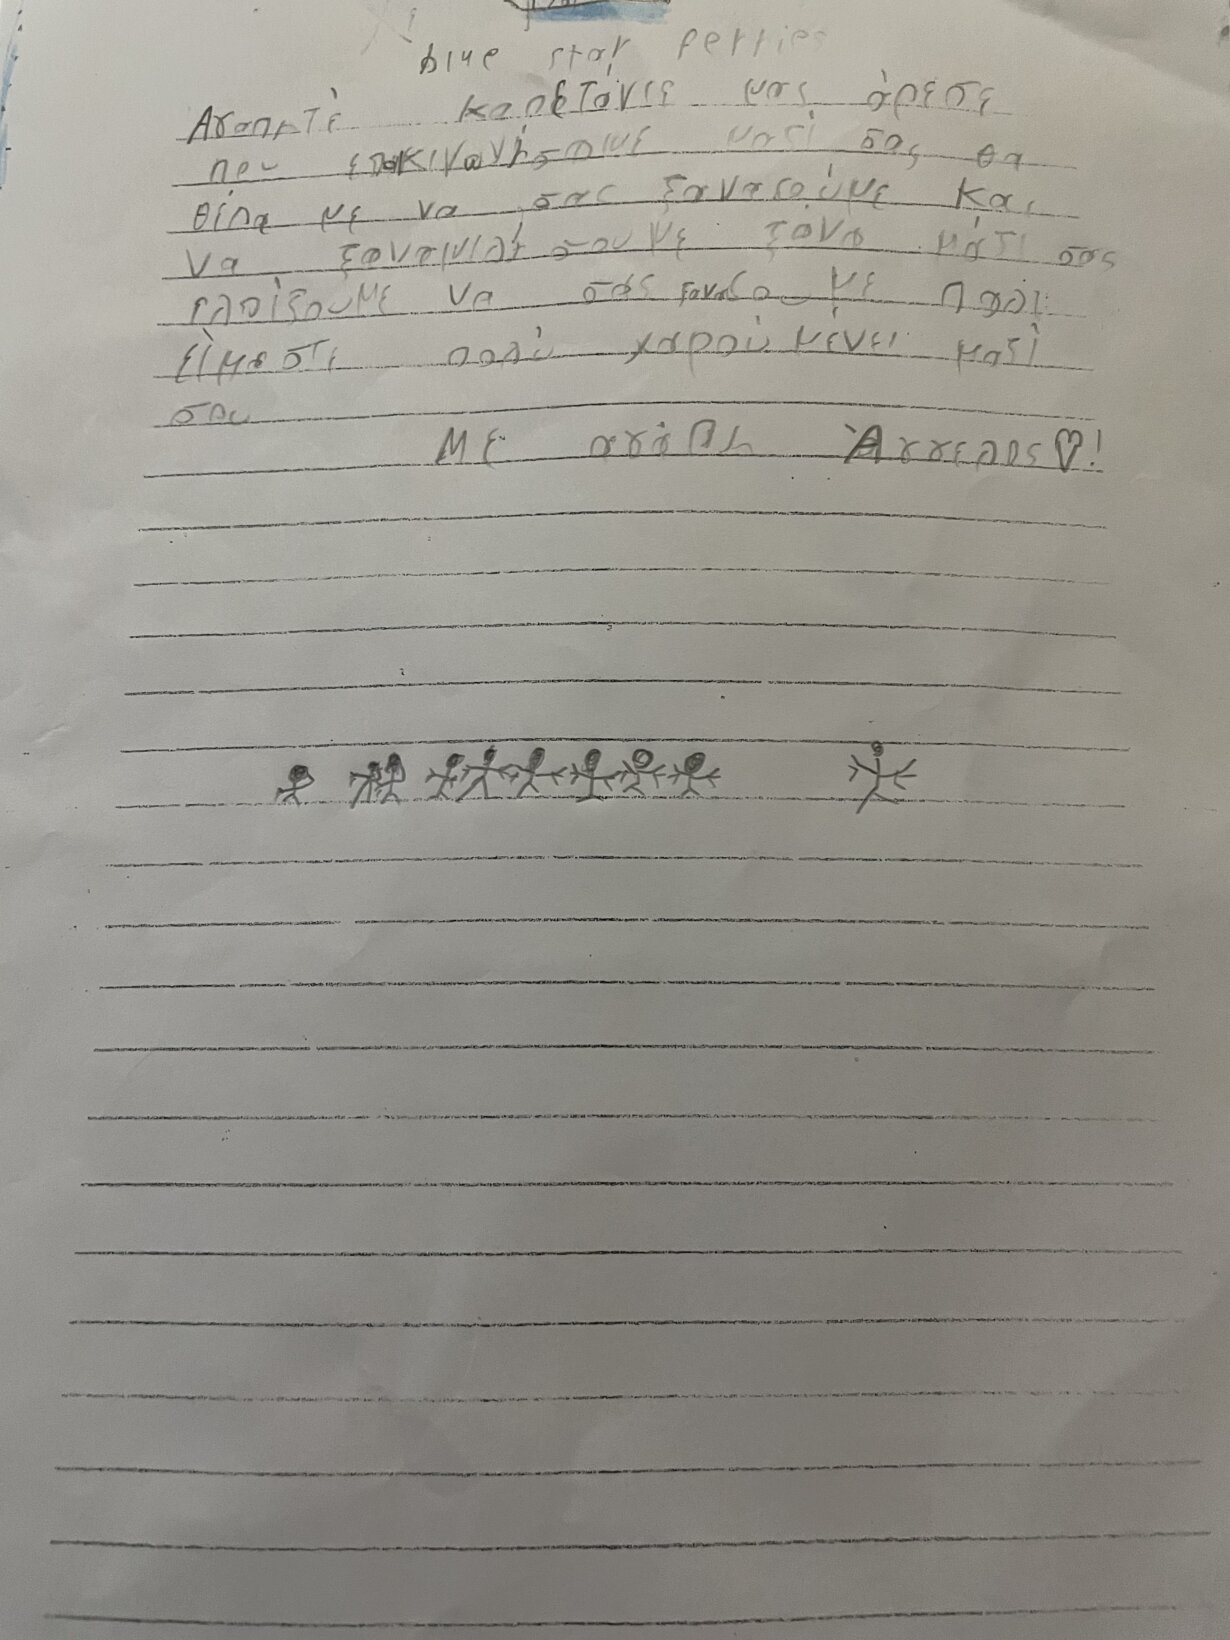 blue star ferries
Αγαπητέ καπετάνιε μας άρεσε
που επικινωνήσαμε ματί σας θα
θέλα με να σας ξαναζούμε και
να ξαναμιλήσουμε ξάνα μάτι σας
ελπίζουμε να σάς ξαναζουμε παλι
είμαστε πολύ χαρούμένει ματί
σου
Με αγάπη Άγγελος♡!